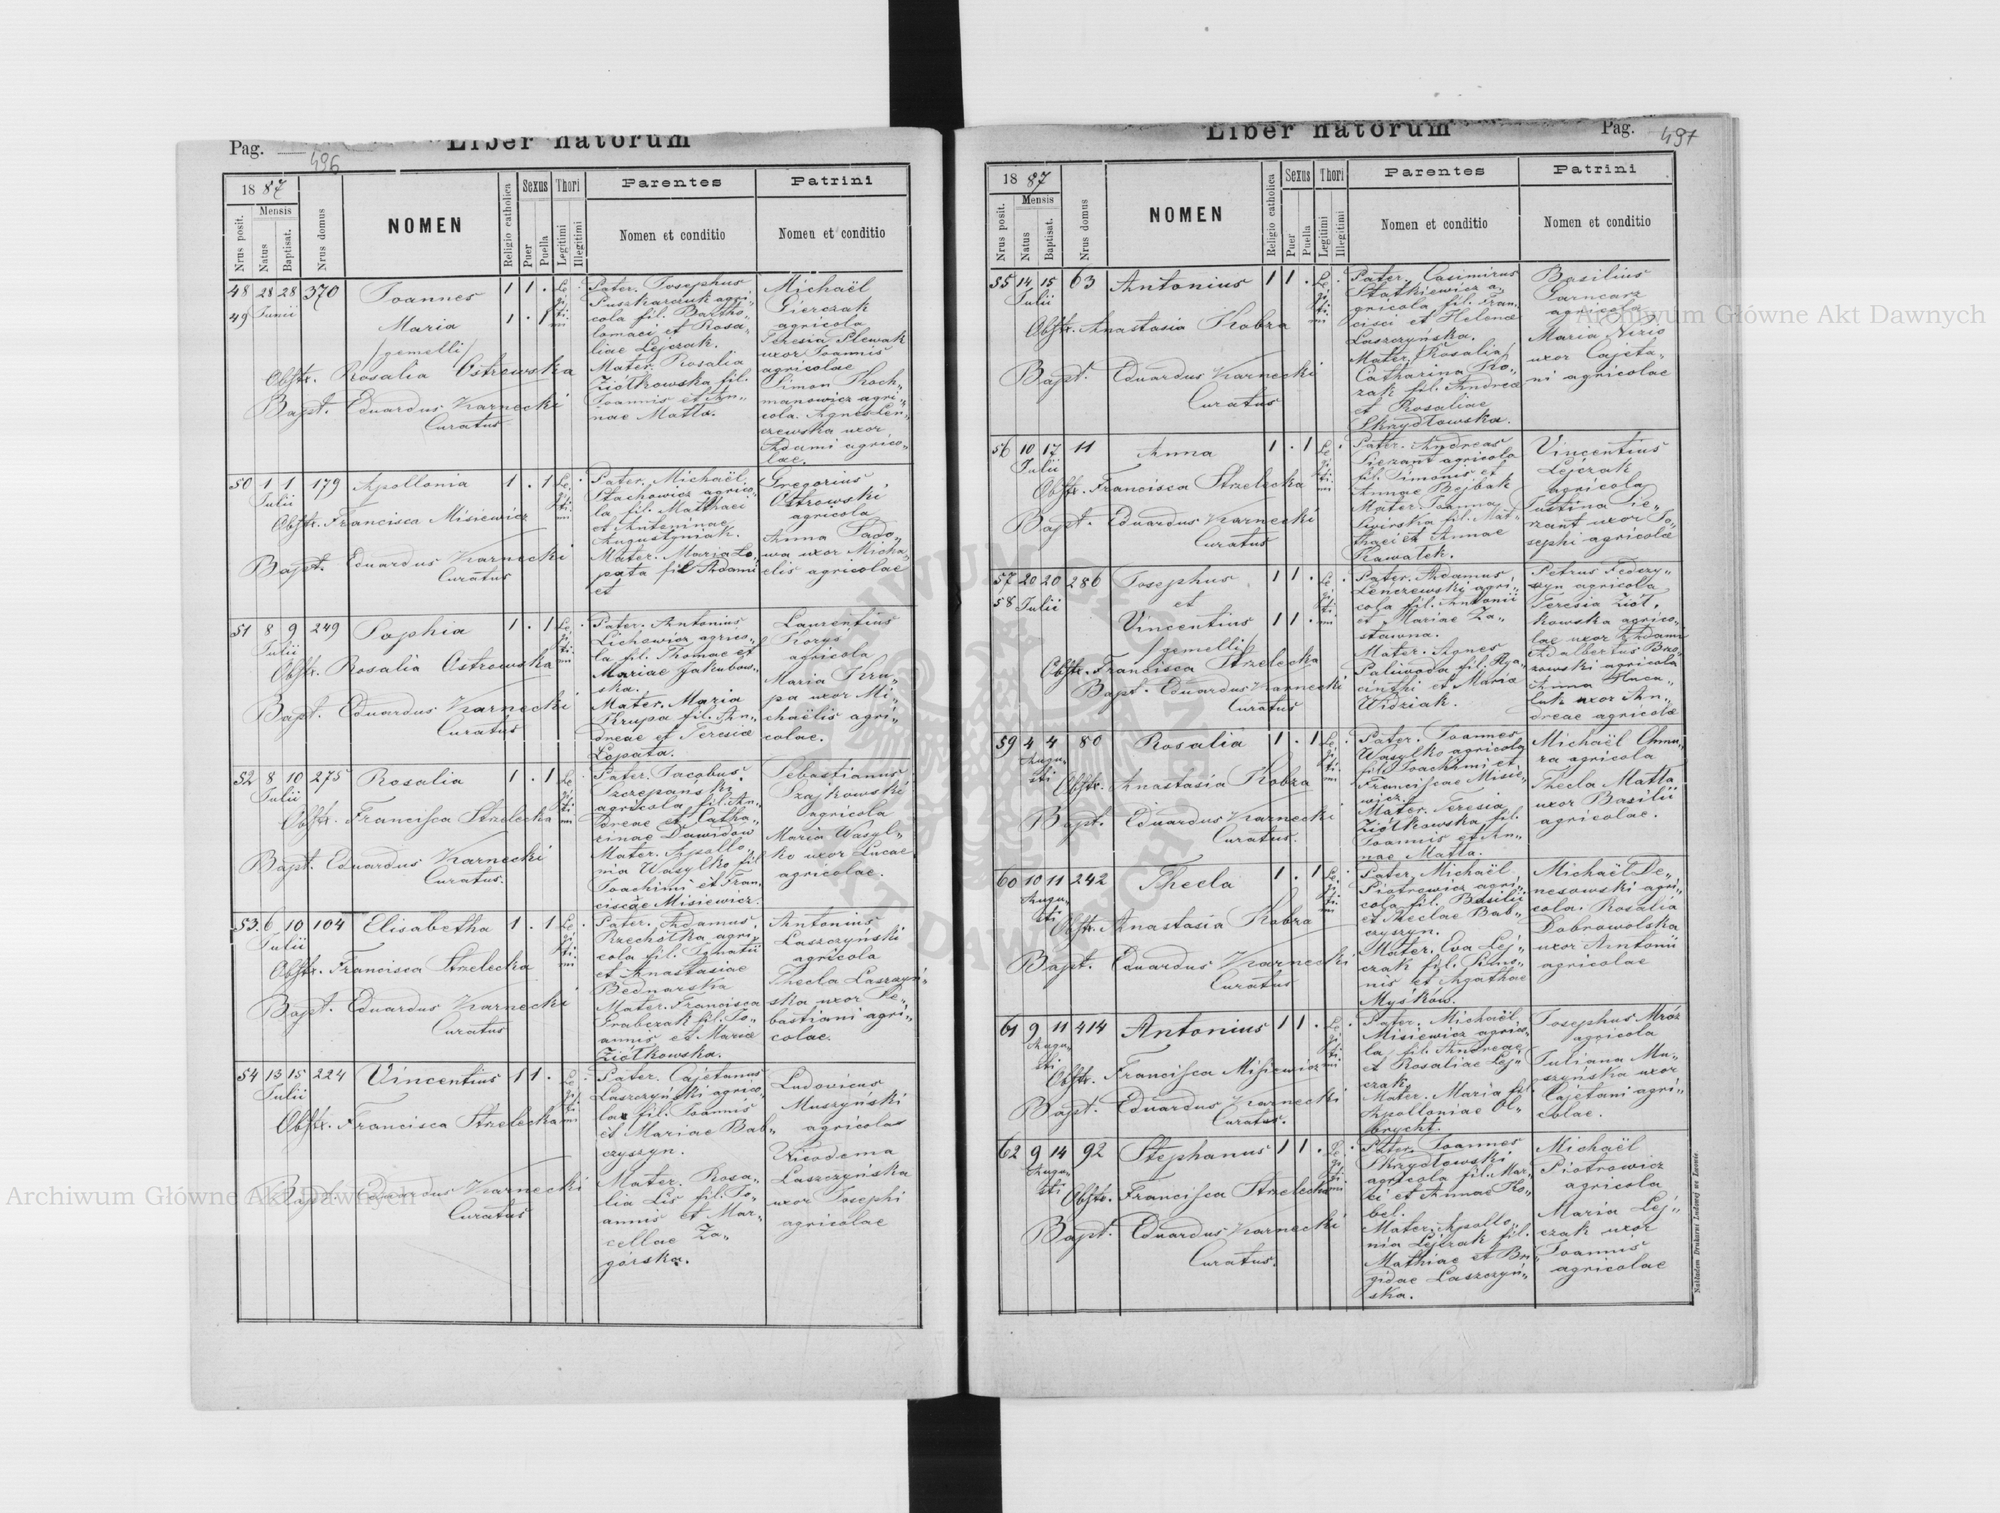 Pag. 496
Liber natorum
1887
Mensis
Nrus posit.
Natus
Baptisat.
Nrus domus
NOMEN
Religio catholica
Sexus
Puer
Puella
Thori
Legitimi
Illegitimi
Parentes
Nomen et conditio
Patrini
Nomen et conditio
48 28 28 370 Joannes 1 1 . Le,,
49 Junii
Maria 1 . 1
gi,,
ti,,
mi
/gemelli/
Obstr. Rosalia Ostrowska
Bapt. Eduardus Karnecki
Curatus
Pater. Josephus
Puszkarczuk agri,,
cola fil. Bartho,,
lomaei et Rosa,,
liae Lejczak.
Mater. Rosalia
Ziółkowska fil.
Joannis et An,,
nae Matla.
Michaël
Gierczak
agricola
Teresia Plewak
uxor Joannis
agricolae
Simon Koch,,
manowicz agri,,
cola. Agnes Len,,
czewska uxor
Adami agrico,,
lae.
50 1 1 179 Apollonia 1 . 1 Le,,
Julii
gi,,
ti,,
mi
Obstr. Francisca Misiewicz
Bapt. Eduardus Karnecki
Curatus
Pater. Michaël
Stachowicz agrico,,
la fil. Matthaei
et Antoninae
Augustyniak.
Mater. Maria Ło,,
pata fil Adami
et
Gregorius
Ostrowski
agricola
Anna Sado,,
wa uxor Micha,,
elis agricolae
51 8 9 249 Sophia 1 . 1 Le,,
Julii
gi,,
ti,,
mi
Obstr. Rosalia Ostrowska
Bapt. Eduardus Karnecki
Curatus
Pater. Antonius
Lichewicz agrico,,
la fil. Thomae et
Mariae Jakubow,,
ska.
Mater. Maria
Krupa fil. An,,
dreae et Teresiae
Łopata.
Laurentius
Korys
agricola
Maria Kru,,
pa uxor Mi,,
chaëlis agri,,
colae.
52 8 10 275 Rosalia 1 . 1 Le,,
Julii
gi,,
ti,,
mi
Obstr. Francisca Strzelecka
Bapt. Eduardus Karnecki
Curatus.
Pater. Jacobus
Szczepański
agricola fil. An,,
dreae et Catha,,
rinae Dawidow
Mater. Apollo,,
nia Wasylko fil
Joachimi et Fran,,
ciscae Misiewicz.
Sebastianus
Szajkowski
agricola
Maria Wasyl,,
ko uxor Lucae
agricolae.
53. 6 10 104 Elisabetha 1 . 1 Le,,
Julii
gi,,
ti,,
mi
Obstr. Francisca Strzelecka
Bapt. Eduardus Karnecki
Curatus
Pater. Adamus
Rzechółka agri,,
cola fil. Ignatii
et Anastasiae
Bednarska
Mater. Francisca
Grabczak fil. Jo,,
annis et Mariae
Ziółkowska.
Antonius
Laszczyński
agricola
Thecla Laszczyń,,
ska uxor Se,,
bastiani agri,,
colae.
54 13 15 224 Vincentius 1 1 . Le,,
Julii
gi,,
ti,,
mi
Obstr. Francisca Strzelecka
Bapt. Eduardus Karnecki
Curatus
Pater. Cajetanus
Laszczyński agrico,,
la fil. Joannis
et Mariae Bab,,
czyszyn.
Mater. Rosa,,
lia Lis fil. Jo,,
annis et Mar,,
cellae Za,,
górska.
Ludovicus
Muszyński
agricola
Nicodema
Laszczyńska
uxor Josephi
agricolae
Liber natorum
Pag. 497
1887
Mensis
Nrus posit.
Natus
Baptisat.
Nrus domus
NOMEN
Religio catholica
Sexus
Puer
Puella
Thori
Legitimi
Illegitimi
Parentes
Nomen et conditio
Patrini
Nomen et conditio
55 14 15 63 Antonius 1 1 . Le,,
Julii
gi,,
ti,,
mi
Obstr. Anastasia Kobza
Bapt. Eduardus Karnecki
Curatus
Pater. Casimirus
Statkiewicz a,,
gricola fil. Fran,,
cisci et Helenae
Laszczyńska.
Mater. /Rosalia/
Catharina Ko,,
zak fil. Andreae
et Rosaliae
Skrzydłowska.
Basilius
Garncarz
agricola
Maria Nizio
uxor Cajeta,,
ni agricolae
56 10 17 11 Anna 1 . 1 Le,,
Julii
gi,,
ti,,
mi
Obstr. Francisca Strzelecka
Bapt. Eduardus Karnecki
Curatus
Pater. Andreas
Sierzant agricola
fil. Simonis et
Annae Bojbak
Mater. Joanna
fil. Mat,,
thaei et Annae
Kawałek.
Vincentius
Lejczak
agricola
Justina Sie,,
rzant uxor Jo,,
sephi agricolae
57 20 20 286 Josephus 1 1 . Le,,
58 Julii
et
Vincentius 1 1 .
gi,,
ti,,
mi
/gemelli/
Obstr. Francisca Strzelecka
Bapt. Eduardus Karnecki
Curatus
Pater. Adamus
Lenczewski agri,,
cola fil. Antonii
et Mariae Za,,
stawna.
Mater. Agnes
Paliwoda fil. Hya,,
cinthi et Mariae
Widziak.
Petrus Fedczy,,
szyn agricola
Teresia Ziół,,
kowska agrico,,
lae uxor Adami
Adalbertus Bro,,
zowski agricola
Anna
uxor An,,
dreae agricolae
59 4 4 80 Rosalia 1 . 1 Le,,
Augu,,
sti
gi,,
ti,,
mi
Obstr. Anastasia Kobza
Bapt. Eduardus Karnecki
Curatus.
Pater. Joannes
Wasylko agricola
fil. Joachimi et
Franciscae Misie,,
wicz.
Mater. Teresia
Ziółkowska fil.
Joannis et An,,
nae Matla.
Michaël Chmu,,
ra agricola
Thecla Matla
uxor Basilii
agricolae.
60 10 11 242 Thecla 1 . 1 Le,,
Augu,,
sti
gi,,
ti,,
mi
Obstr. Anastasia Kobza
Bapt. Eduardus Karnecki
Curatus
Pater. Michaël
Piotrowicz agri,,
cola fil. Basilii
et Theclae Bab,,
czyszyn.
Mater. Eva Lej,,
czak fil. Simo,,
nis et Agathae
Myśków.
Michaël De,,
nesowski agri,,
cola. Rosalia
Dobrowolska
uxor Antonii
agricolae
61 9 11 414 Antonius 1 1 . Le,,
Augu,,
sti
gi,,
ti,,
mi
Obstr. Francisca Misiewicz
Bapt. Eduardus Karnecki
Curatus.
Pater. Michaël
Misiewicz agrico,,
la, fil. Andreae
et Rosaliae Lej,,
czak.
Mater. Maria fil.
Apolloniae Ol,,
brycht.
Josephus Mróz
agricola
Juliana Mu,,
szyńska uxor
Cajetani agri,,
colae.
62 9 14 92 Stephanus 1 1 . Le,,
Augu,,
sti
gi,,
ti,,
mi
Obstr. Francisca Strzelecka
Bapt. Eduardus Karnecki
Curatus.
Pater. Joannes
Skrzydłowski
agricola fil. Mar,,
ci et Annae Ko,,
bel.
Mater. Apollo,,
nia Lejczak fil.
Mathiae et Bri,,
gidae Laszczyń,,
ska.
Michaël
Piotrowicz
agricola
Maria Lej,,
czak uxor
Joannis
agricolae
Nakładem Drukarni Ludowej we Lwowie.
Archiwum Główne Akt Dawnych
Archiwum Główne Akt Dawnych
ARCHIWUM GŁÓWNE AKT DAWNYCH